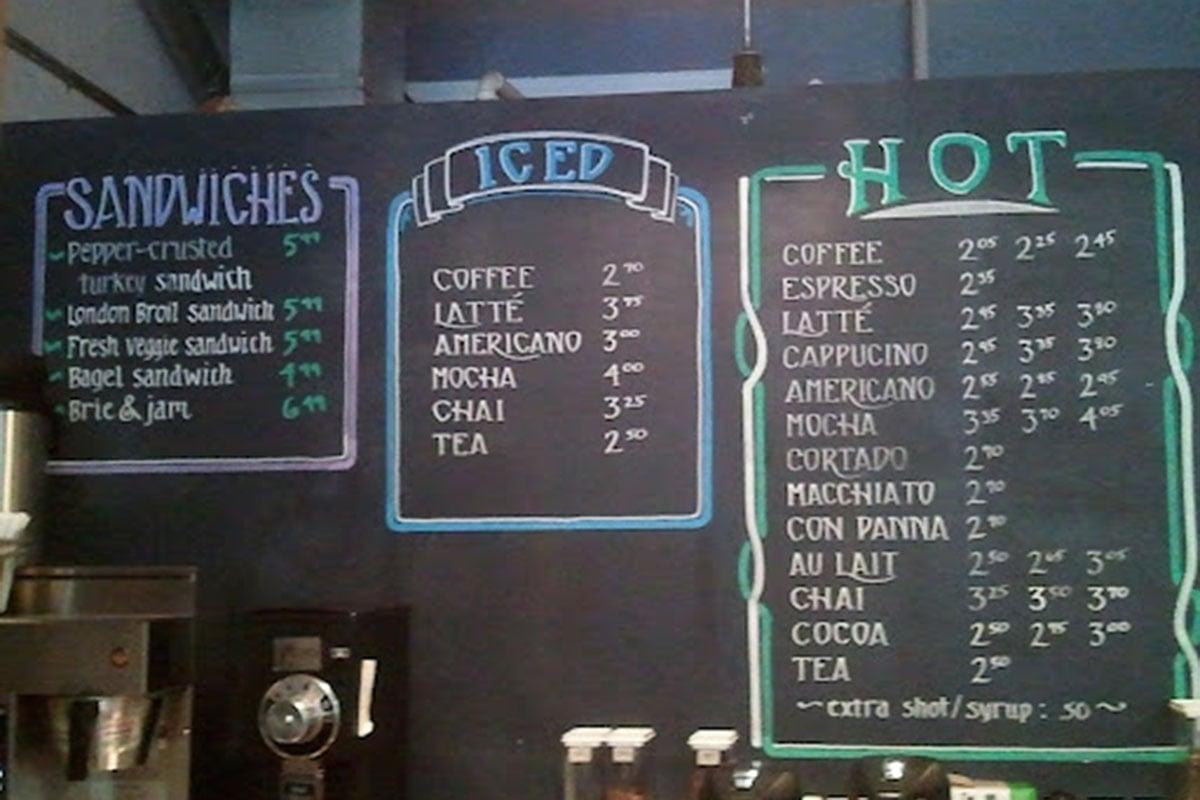 SANDWICHES
Pepper-crusted 5.99
turkey sandwich
London Broil sandwich 5.99
Fresh veggie sandwich 5.99
Bagel sandwich 4.99
Brie & jam 6.99
ICED
COFFEE 2.70
LATTÉ
AMERICANO 3.00
MOCHA 4.00
CHAI 3.25
TEA 2.50
HOT
COFFEE 2.05 2.25 2.45
ESPRESSO
LATTÉ
CAPPUCINO
AMERICANO
MOCHA
CORTADO
MACCHIATO
CON PANNA
AU LAIT
CHAI 3.25 3.50
COCOA 2.50 2.75 3.00
TEA 2.50
~extra shot/syrup: .50~